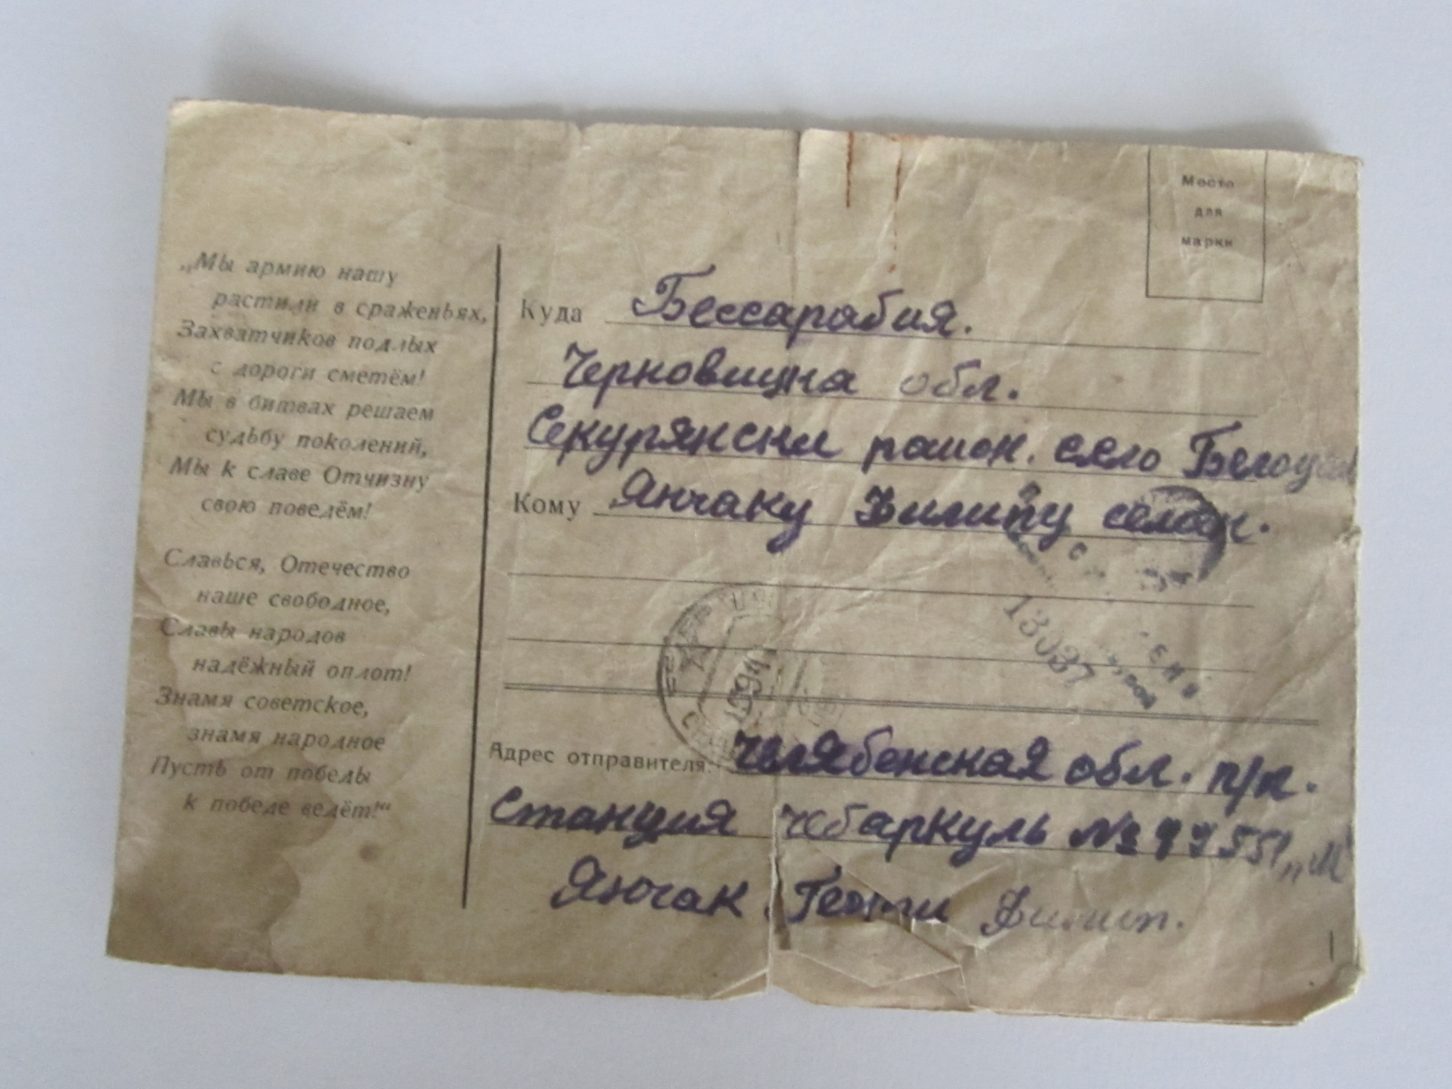 Место
для
марки
„Мы армию нашу
растили в сраженьях,
Захватчиков подлых
с дороги сметём!
Мы в битвах решаем
судьбу поколений,
Мы к славе Отчизну
свою поведём!
Славься, Отечество
наше свободное,
Славы народов
надёжный оплот!
Знамя советское,
знамя народное
Пусть от победы
к победе ведёт!“
Куда Бессарабия.
Черновицка обл.
Секурянски район. село
Кому Янчаку Филипу
13037
Адрес отправителя: Челябенская обл. п/п.
Станция Чебаркуль №
Янчак Филип.